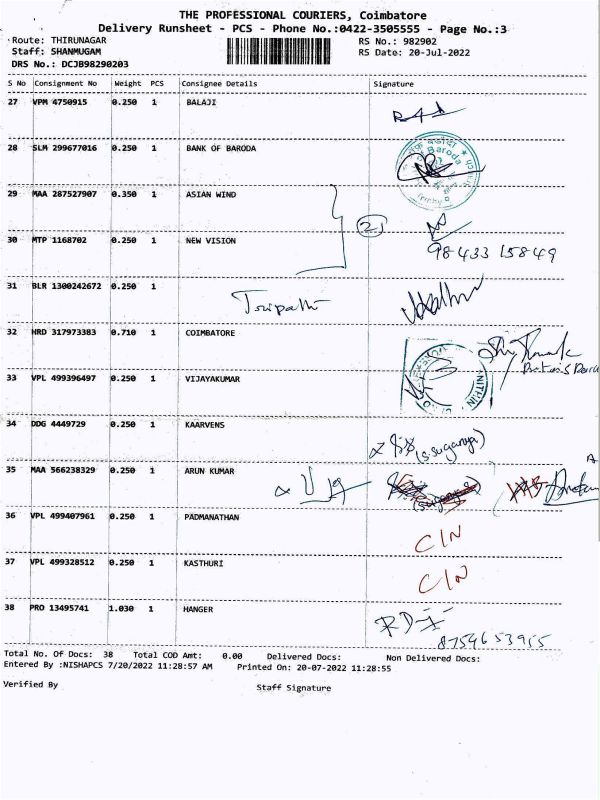 THE PROFESSIONAL COURIERS, Coimbatore
Delivery Runsheet - PCS - Phone No.:0422-3505555 - Page No.:3
Route: THIRUNAGAR RS No.: 982902
Staff: SHANMUGAM RS Date: 20-Jul-2022
DRS No.: DCJB98290203
S No Consignment No Weight PCS Consignee Details Signature
27 VPM 4750915 0.250 1 BALAJI
28 SLM 299677016 0.250 1 BANK OF BARODA
of Baroda
29 MAA 287527907 0.350 1 ASIAN WIND
2
30 MTP 1168702 0.250 1 NEW VISION
98433 15849
31 BLR 1300242672 0.250 1
Tripathi
32 HRD 317973383 0.710 1 COIMBATORE
33 VPL 499396497 0.250 1 VIJAYAKUMAR
34 DDG 4449729 0.250 1 KAARVENS
(s.suganya)
35 MAA 566238329 0.250 1 ARUN KUMAR
36 VPL 499407961 0.250 1 PADMANATHAN
C/N
37 VPL 499328512 0.250 1 KASTHURI
C/N
38 PRO 13495741 1.030 1 HANGER
8754653955
Total No. Of Docs: 38 Total COD Amt: 0.00 Delivered Docs: Non Delivered Docs:
Entered By :NISHAPCS 7/20/2022 11:28:57 AM Printed On: 20-07-2022 11:28:55
Verified By Staff Signature